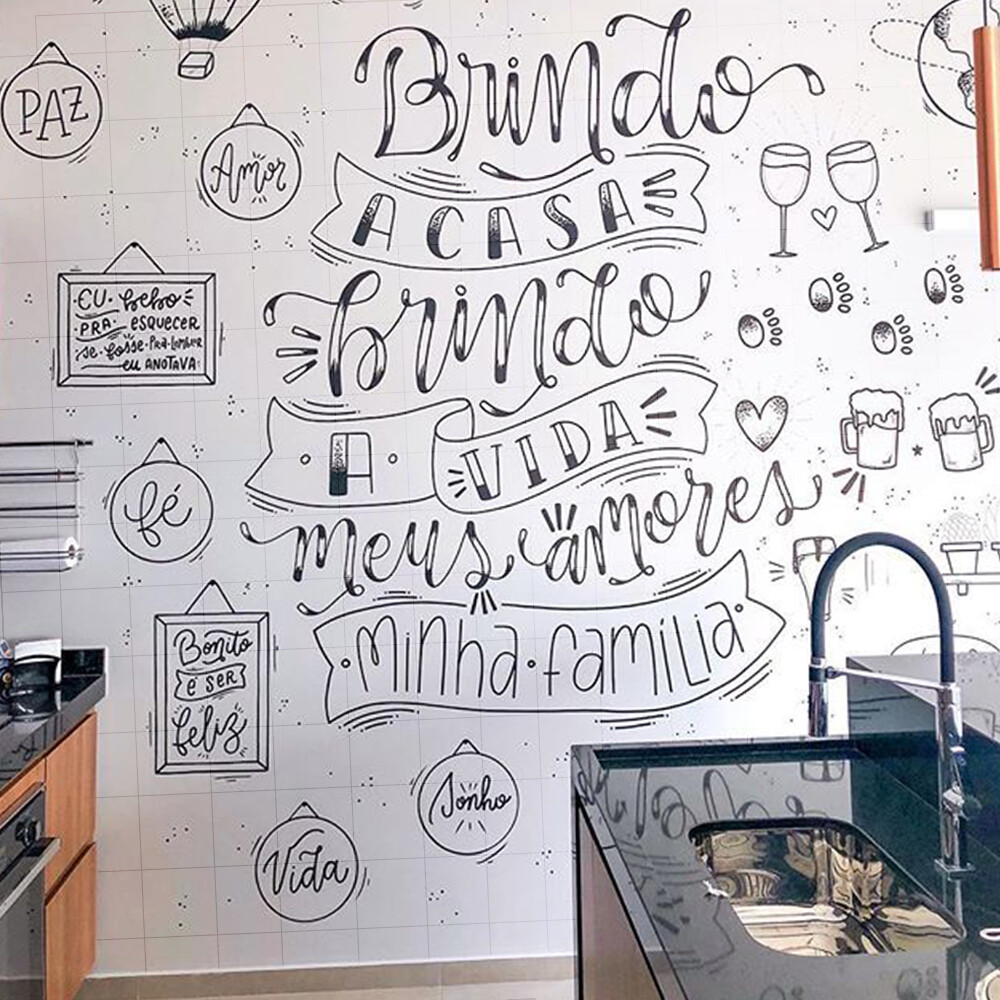 PAZ
Amor
EU bebo
PRA ESQUECER
se fosse PRA Lembrar
eu ANOTAVA
fé
Bonito
é SER
feliz
Brindo
A CASA
brindo
A VIDA
meus amores
minha família
Sonho
Vida